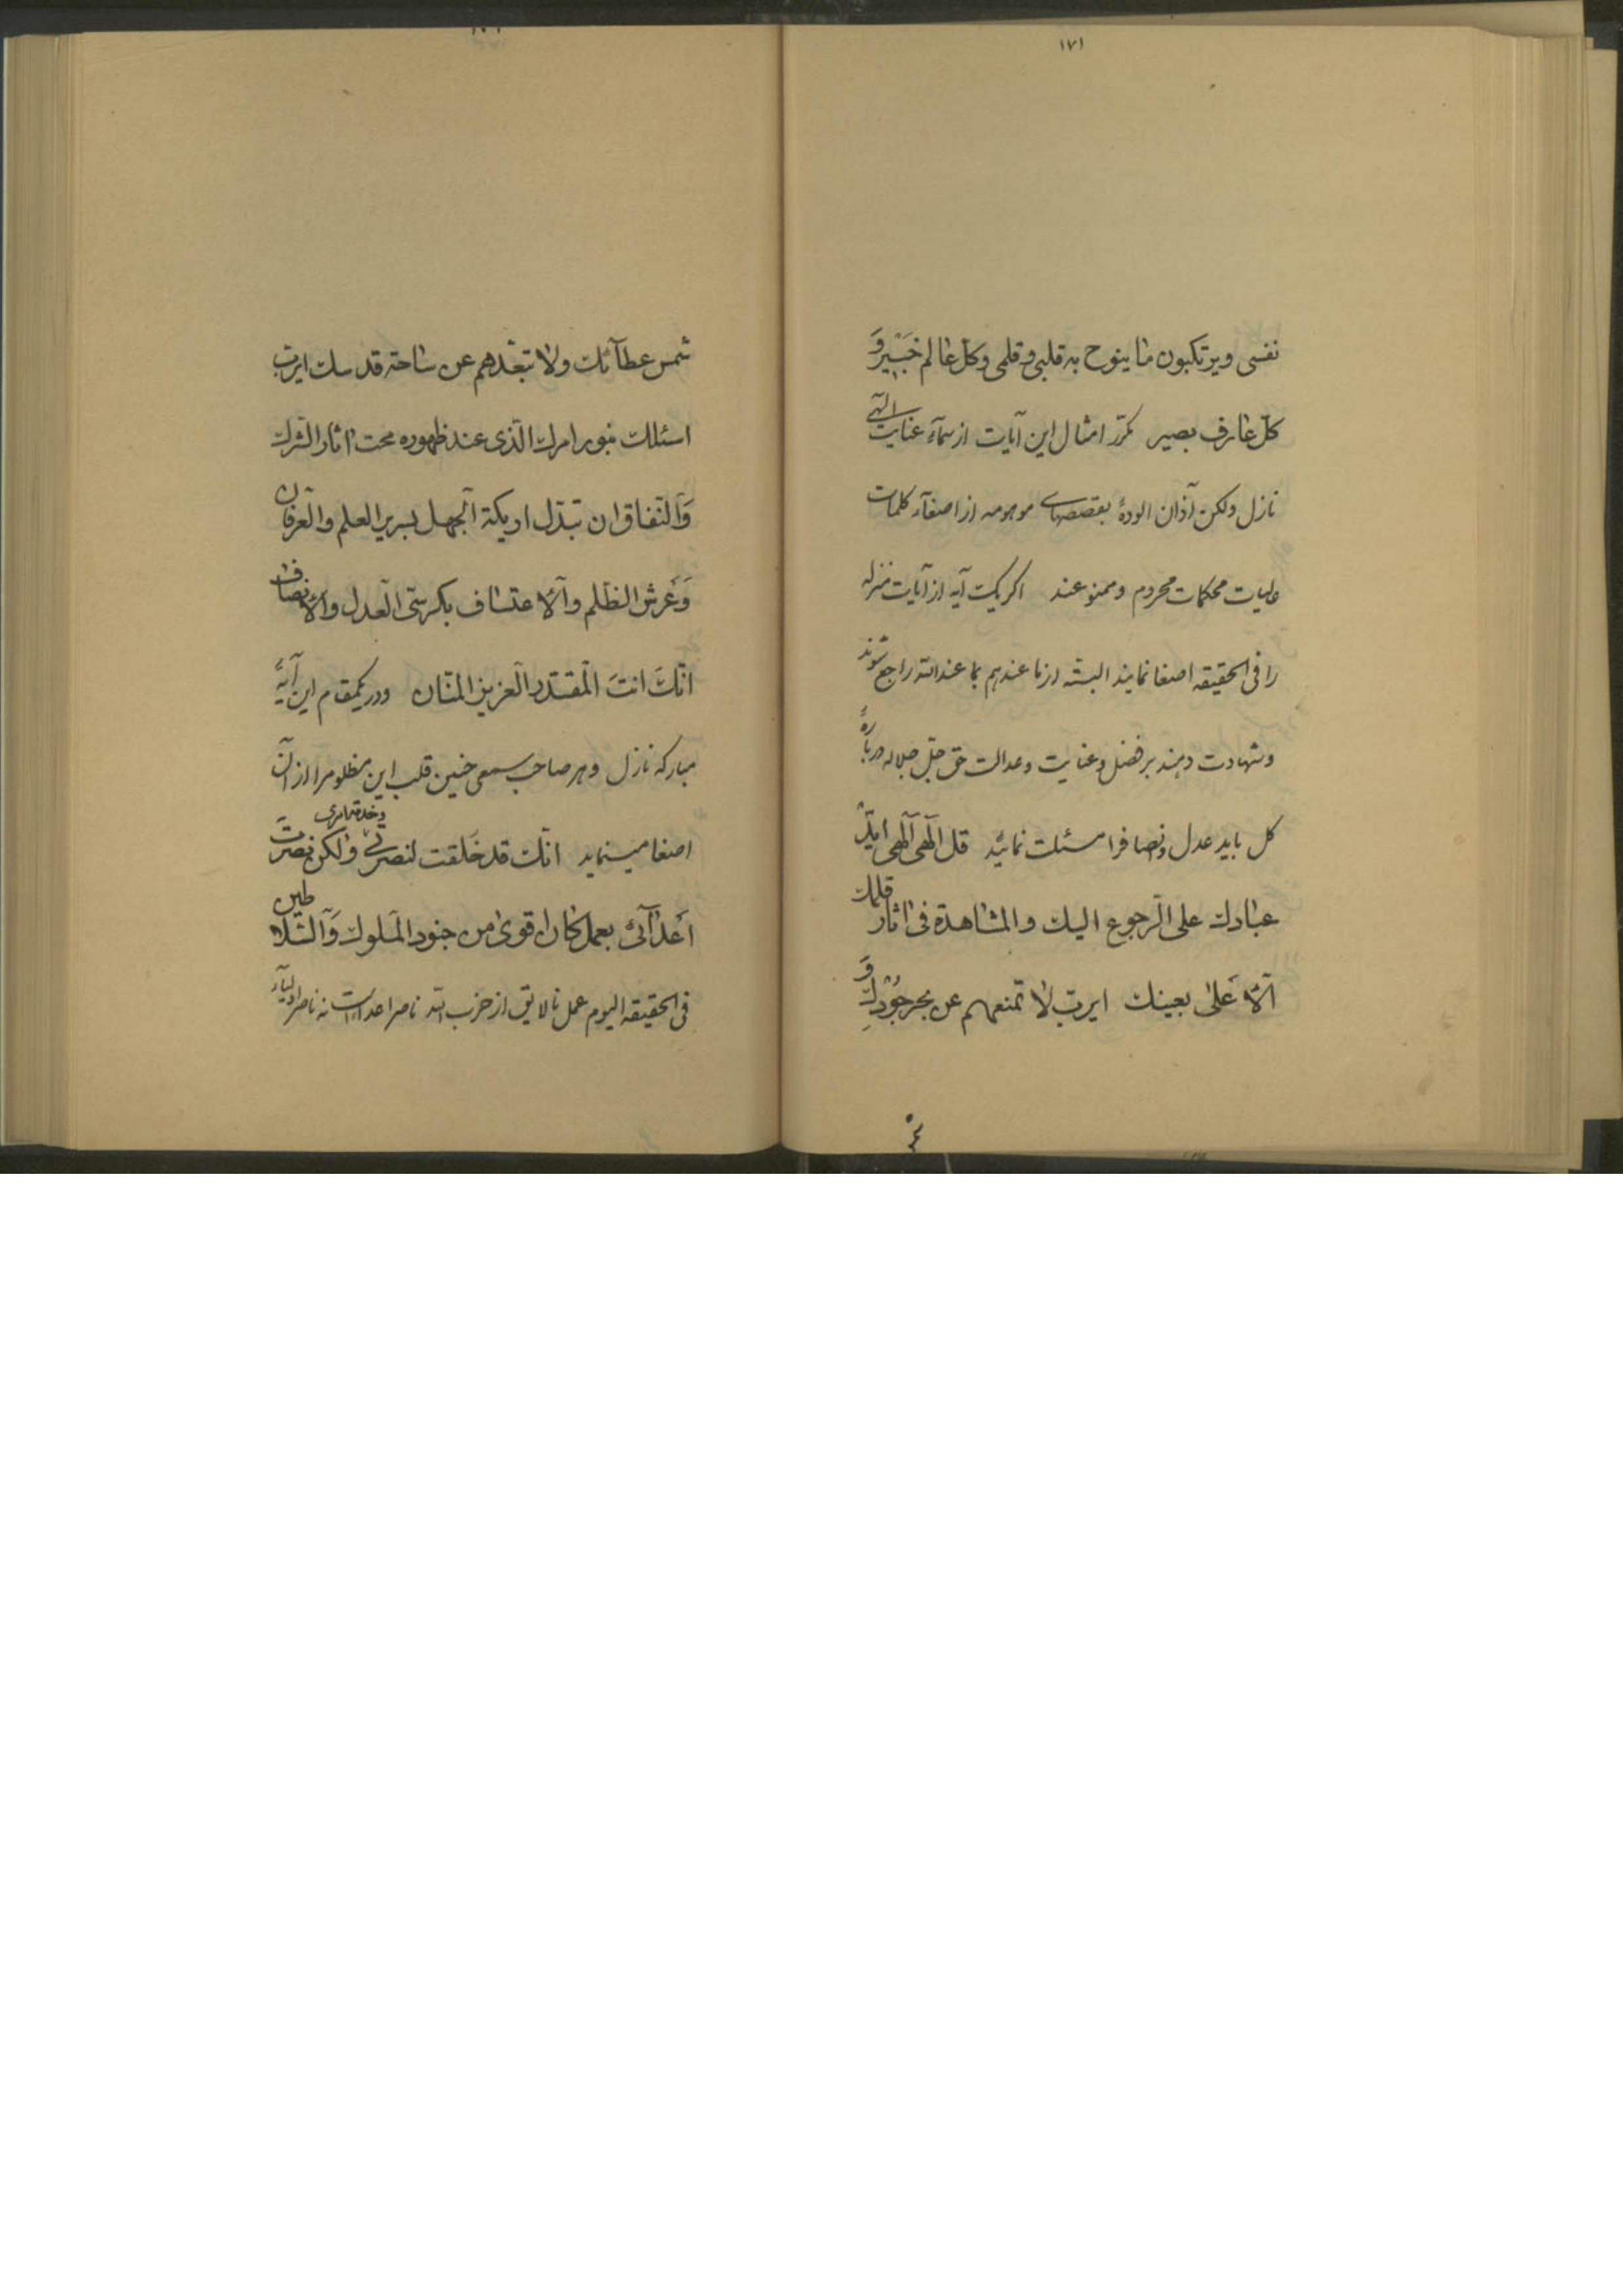 ۱۷۱
نفسی و یرتکبون ما ینوح به قلبی و قلمی و کل عالم خبیر و
کل عارف بصیر مکرر امثال این آیات از سماء عنایت الهی
نازل ولکن آذان الودهٔ بقصصهای موهومه از اصغآء کلمات
عالیات محکمات محروم و ممنوعند اکر یک آیه از آیات منزله
را فی الحقیقه اصغا نمایند البته از ما عندهم بما عند الله راجع شوند
و شهادت دهند بر فضل و عنایت و عدالت حق جل جلاله دربارهٔ
کل باید عدل و انصافرا مسئلت نمائید قل الهی الهی اید
عبادک علی الرجوع الیک و المشاهدة فی اثار قلمک
الاعلی بعینک ایرب لا تمنعهم عن بحر جودک و
شمس عطآئک ولا تبعدهم عن ساحة قدسک ایرب
اسئلک بنور امرک الذی عند ظهوره محت اثار الشرک
والنفاق ان تبدل اریکة الجهل بسریر العلم والعرفان
وعرش الظلم والاعتساف بکرسی العدل والانصاف
انک انت المقتدر العزیز المنان و در یکمقام این آیهٔ
مبارکه نازل و هر صاحب سمعی حنین قلب این مظلومرا از آن
اصغا مینماید انک قد خلقت لنصرتی و خدمة امری ولکن نصرت
اعدآئی بعمل کان اقوی من جنود الملوک والسلاطین
فی الحقیقه الیوم عمل نالایق از حزب الله ناصر اعداست نه ناصر اولیآء